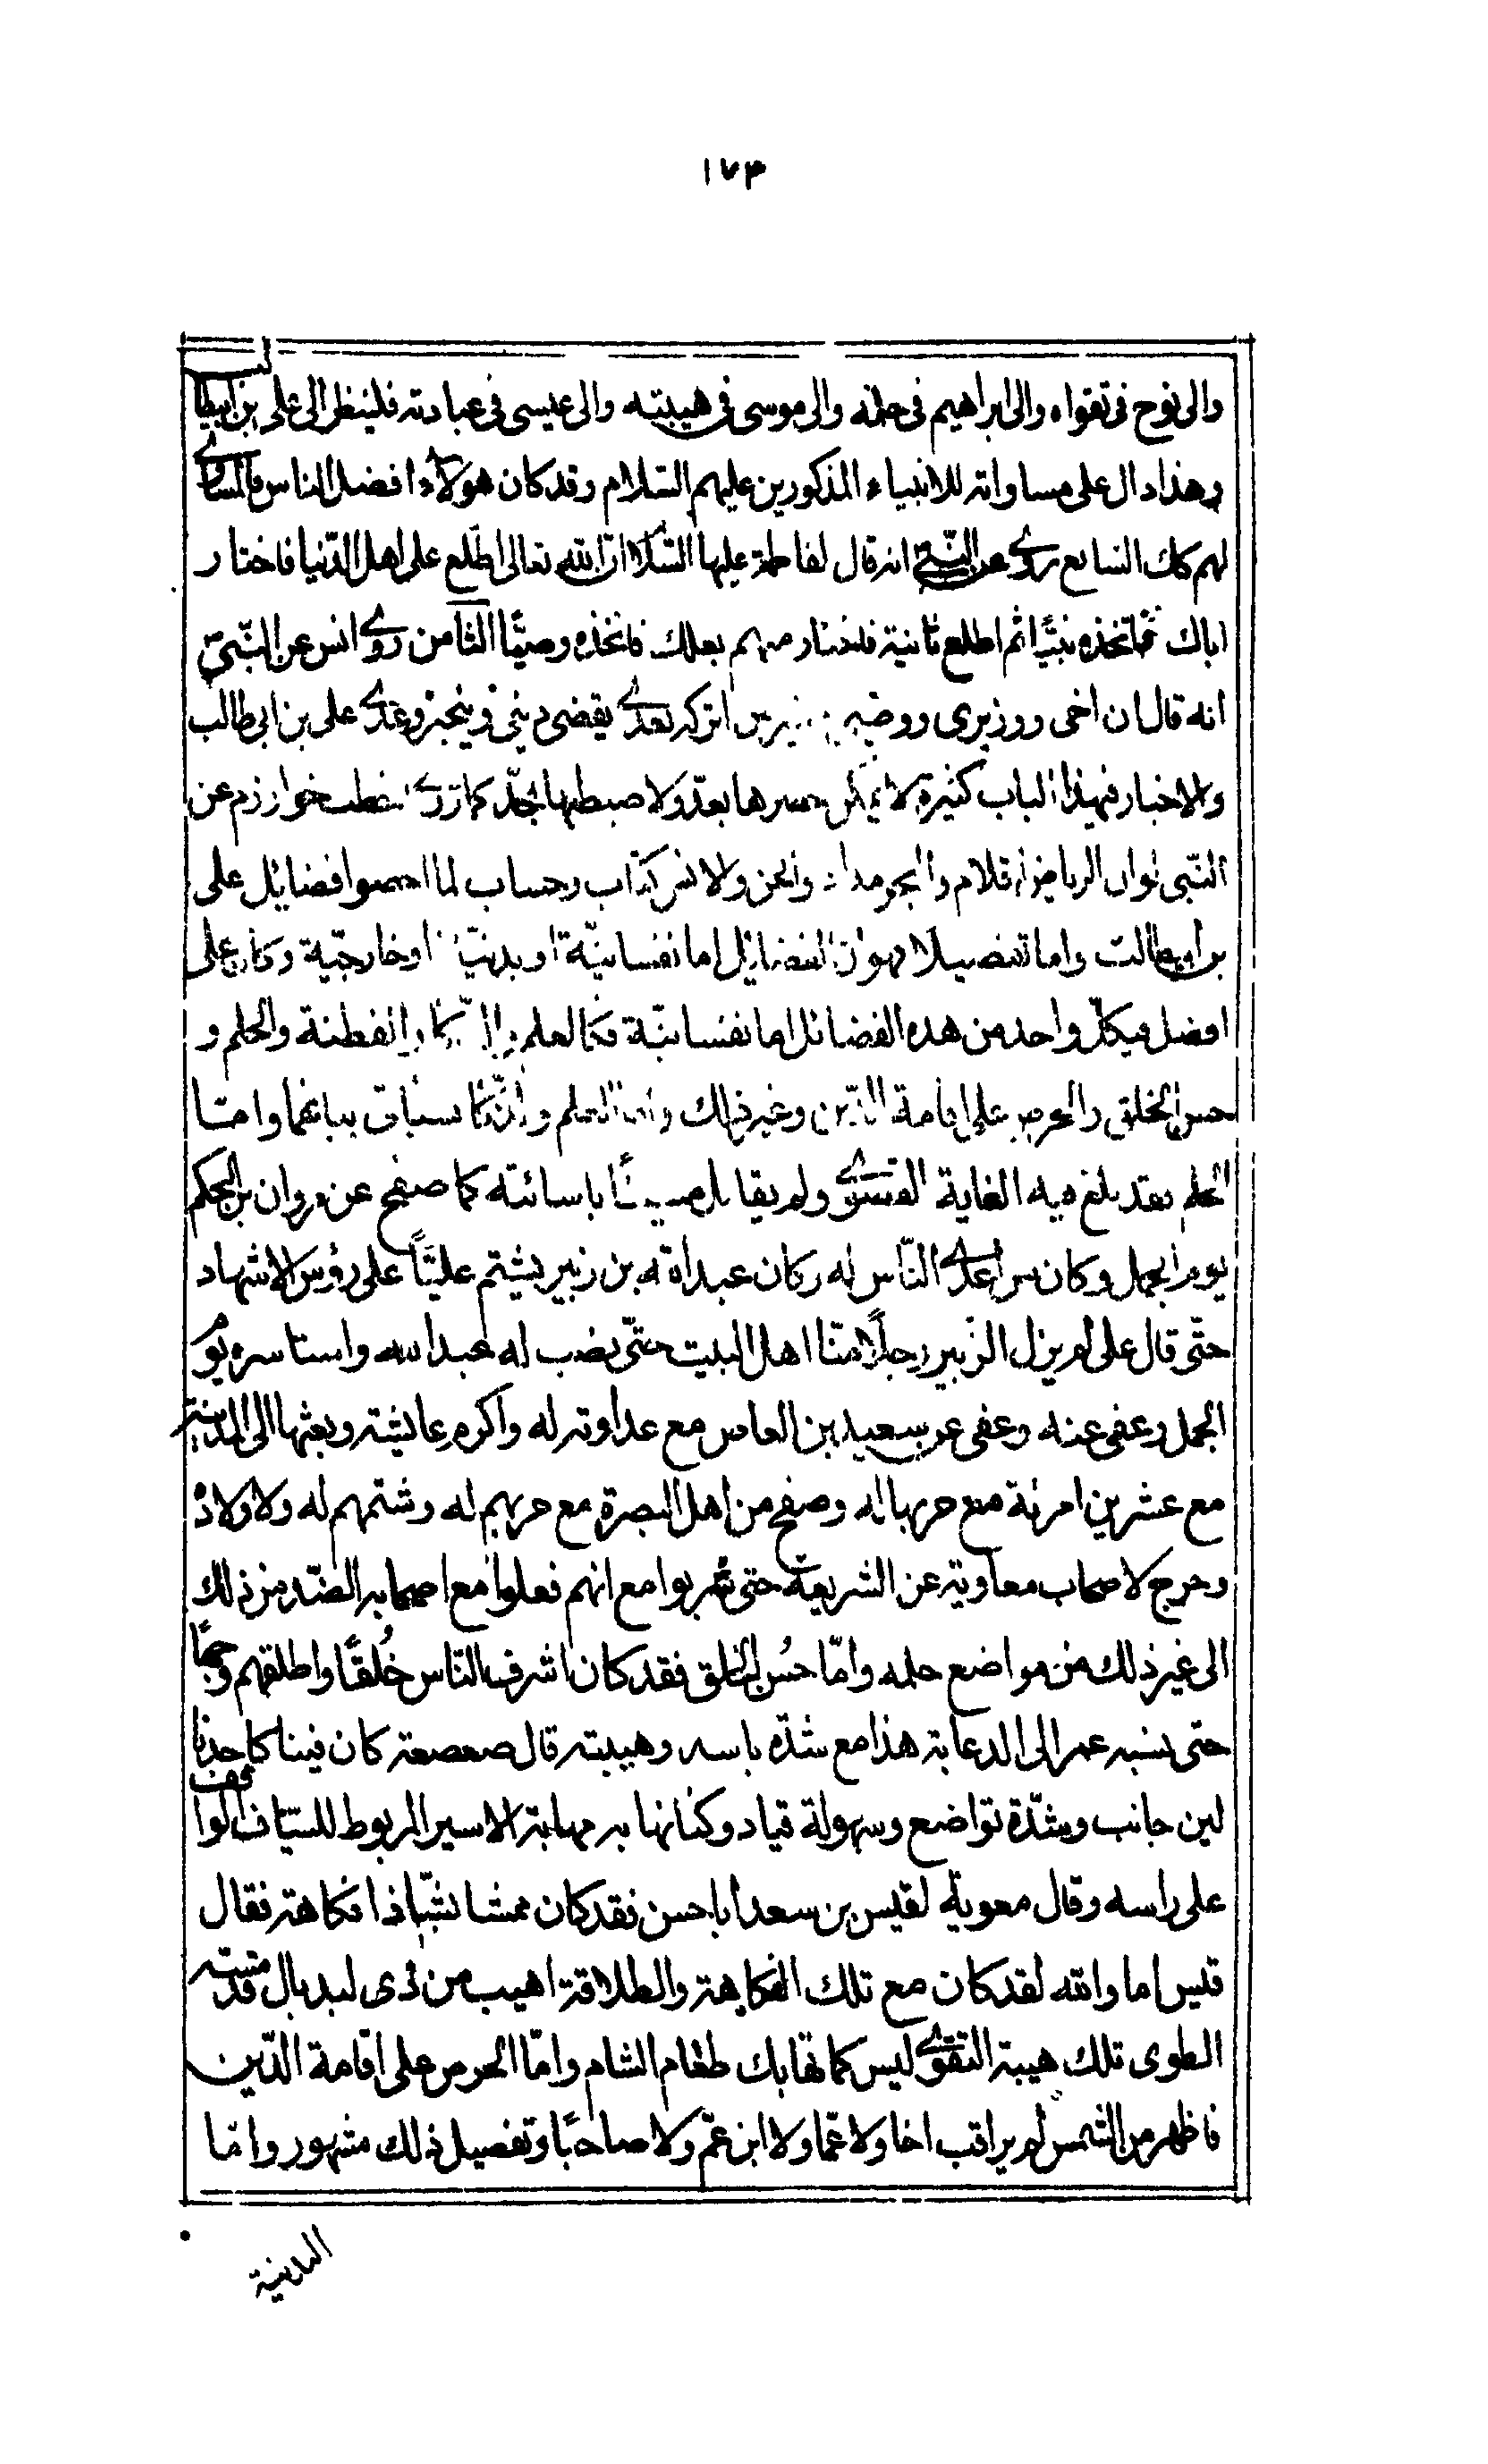 ١٧٣
والى نوح فى تقواه والى ابراهيم فى حلمه والى موسى فى هيبته والى عيسى فى عبادته فلينظر الى على بن ابيطالب
وهذا دال على مساواته للانبياء المذكورين عليهم السّلام وقد كان هؤلاء افضل الناس فالمساوى
لهم كك السابع روى عن النبىّ انه قال لفاطمة عليها السّلام انّ الله تعالى اطّلع على اهل الدّنيا فاختار
اباك فاتخذه نبيًّا ثم اطلع ثانية فاختار منهم بعلك فاتخذه وصيًّا الثامن روى انس عن النّبىّ
انه قال ان اخى ووزيرى ووصيى وخير من اتركه بعدى يقضى دينى وينجز وعدى على بن ابى طالب
والاخبار فى هذا الباب كثيرة لا يمكن حصرها بعدّ ولا ضبطها بحدّ كما روى اخطب خوارزم عن
النّبى لو ان الرياض اقلام والبحر مداد والجن والانس كتاب وحساب لما احصوا فضايل على
بن ابيطالب واما تفصيلا فهو ان الفضايل اما نفسانيّة او بدنيّة او خارجيّة وكان على
افضل فى كلّ واحد من هذه الفضائل اما نفسانيّة فكالعلم والذّكاء والفطنة والحلم و
حسن الخلق والحرص على اقامة الدّين وغير ذلك واما العلم والذّكا سياتى بيانهما وامّا
الحلم فقد بلغ فيه الغاية القصوى ولم يقابل مسيئًا باسائته كما صفح عن مروان بن الحكم
يوم الجمل وكان من اعدى النّاس له وكان عبد الله بن زبير يشتم عليًّا على رؤس الاشهاد
حتّى قال على لم يزل الزّبير رجلًا منّا اهل البيت حتى نصب له عبد الله واستاسره يوم
الجمل وعفى عنه وعفى عن سعيد بن العاص مع عداوته له واكرم عايشة وبعثها الى المدينة
مع عشرين امرئة مع حربها له وصفح من اهل البصرة مع حربهم له وشتمهم له ولاولاده
وخرج لاصحاب معاوية عن الشريعة حتى شربوا مع انهم فعلوا مع اصحابه الضدّ من ذلك
الى غير ذلك من مواضع حلمه وامّا حسُن الخلق فقد كان اشرف النّاس خُلقًا واطلقهم وجهًا
حتى نسبه عمر الى الدعابة هذا مع شدّة باسه وهيبته قال صعصعة كان فينا كاحدنا
لين جانب وشدّة تواضع وسهولة قياد وكنا نهابه مهابة الاسير المربوط للسيّاف الواقف
على راسه وقال معوية لقيس بن سعد ابا حسن فقد كان هشا بشّا ذا فكاهة فقال
قيس اما والله لقد كان مع تلك الفكاهة والطلاقة اهيب من ذى لبد بال قد مسّته
الطوى تلك هيبة التقوى ليس كما تهابك طغام الشام وامّا الحرص على اقامة الدّين
فاظهر من الشمس لم يراقب اخا ولا عمّا ولا ابن عمّ ولا صاحبًا وتفصيل ذلك مشهور وامّا
البدنية